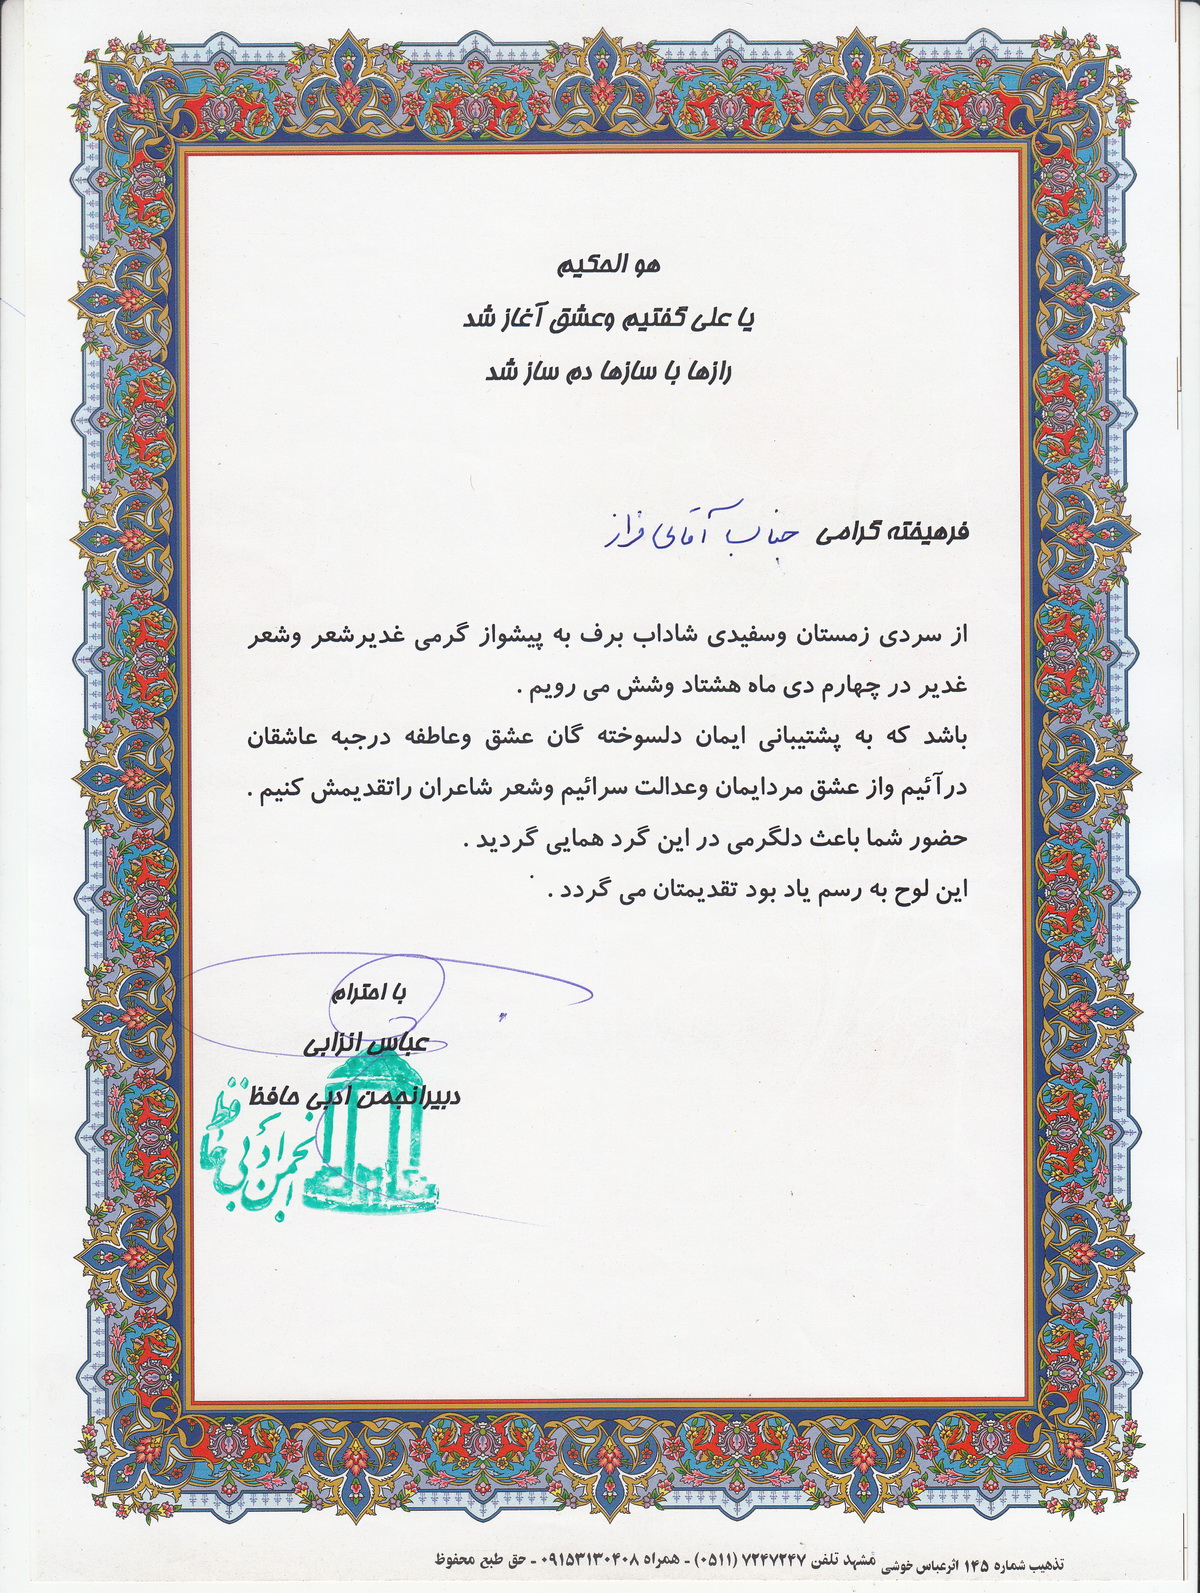 هو الحکیم
یا علی گفتیم وعشق آغاز شد
رازها با سازها دم ساز شد
فرهیخته گرامی جناب آقای فراز
از سردی زمستان وسفیدی شاداب برف به پیشواز گرمی غدیرشعر وشعر
غدیر در چهارم دی ماه هشتاد وشش می رویم .
باشد که به پشتیبانی ایمان دلسوخته گان عشق وعاطفه درجبه عاشقان
درآئیم واز عشق مردایمان وعدالت سرائیم وشعر شاعران راتقدیمش کنیم .
حضور شما باعث دلگرمی در این گرد همایی گردید .
این لوح به رسم یاد بود تقدیمتان می گردد .
با احترام
عباس انزابی
دبیرانجمن ادبی حافظ
انجمن ادبی حافظ
تذهیب شماره ۱۴۵ اثرعباس خوشی مشهد تلفن ۷۲۴۷۲۴۷ (۰۵۱۱) - همراه ۰۹۱۵۳۱۳۰۴۰۸ - حق طبع محفوظ